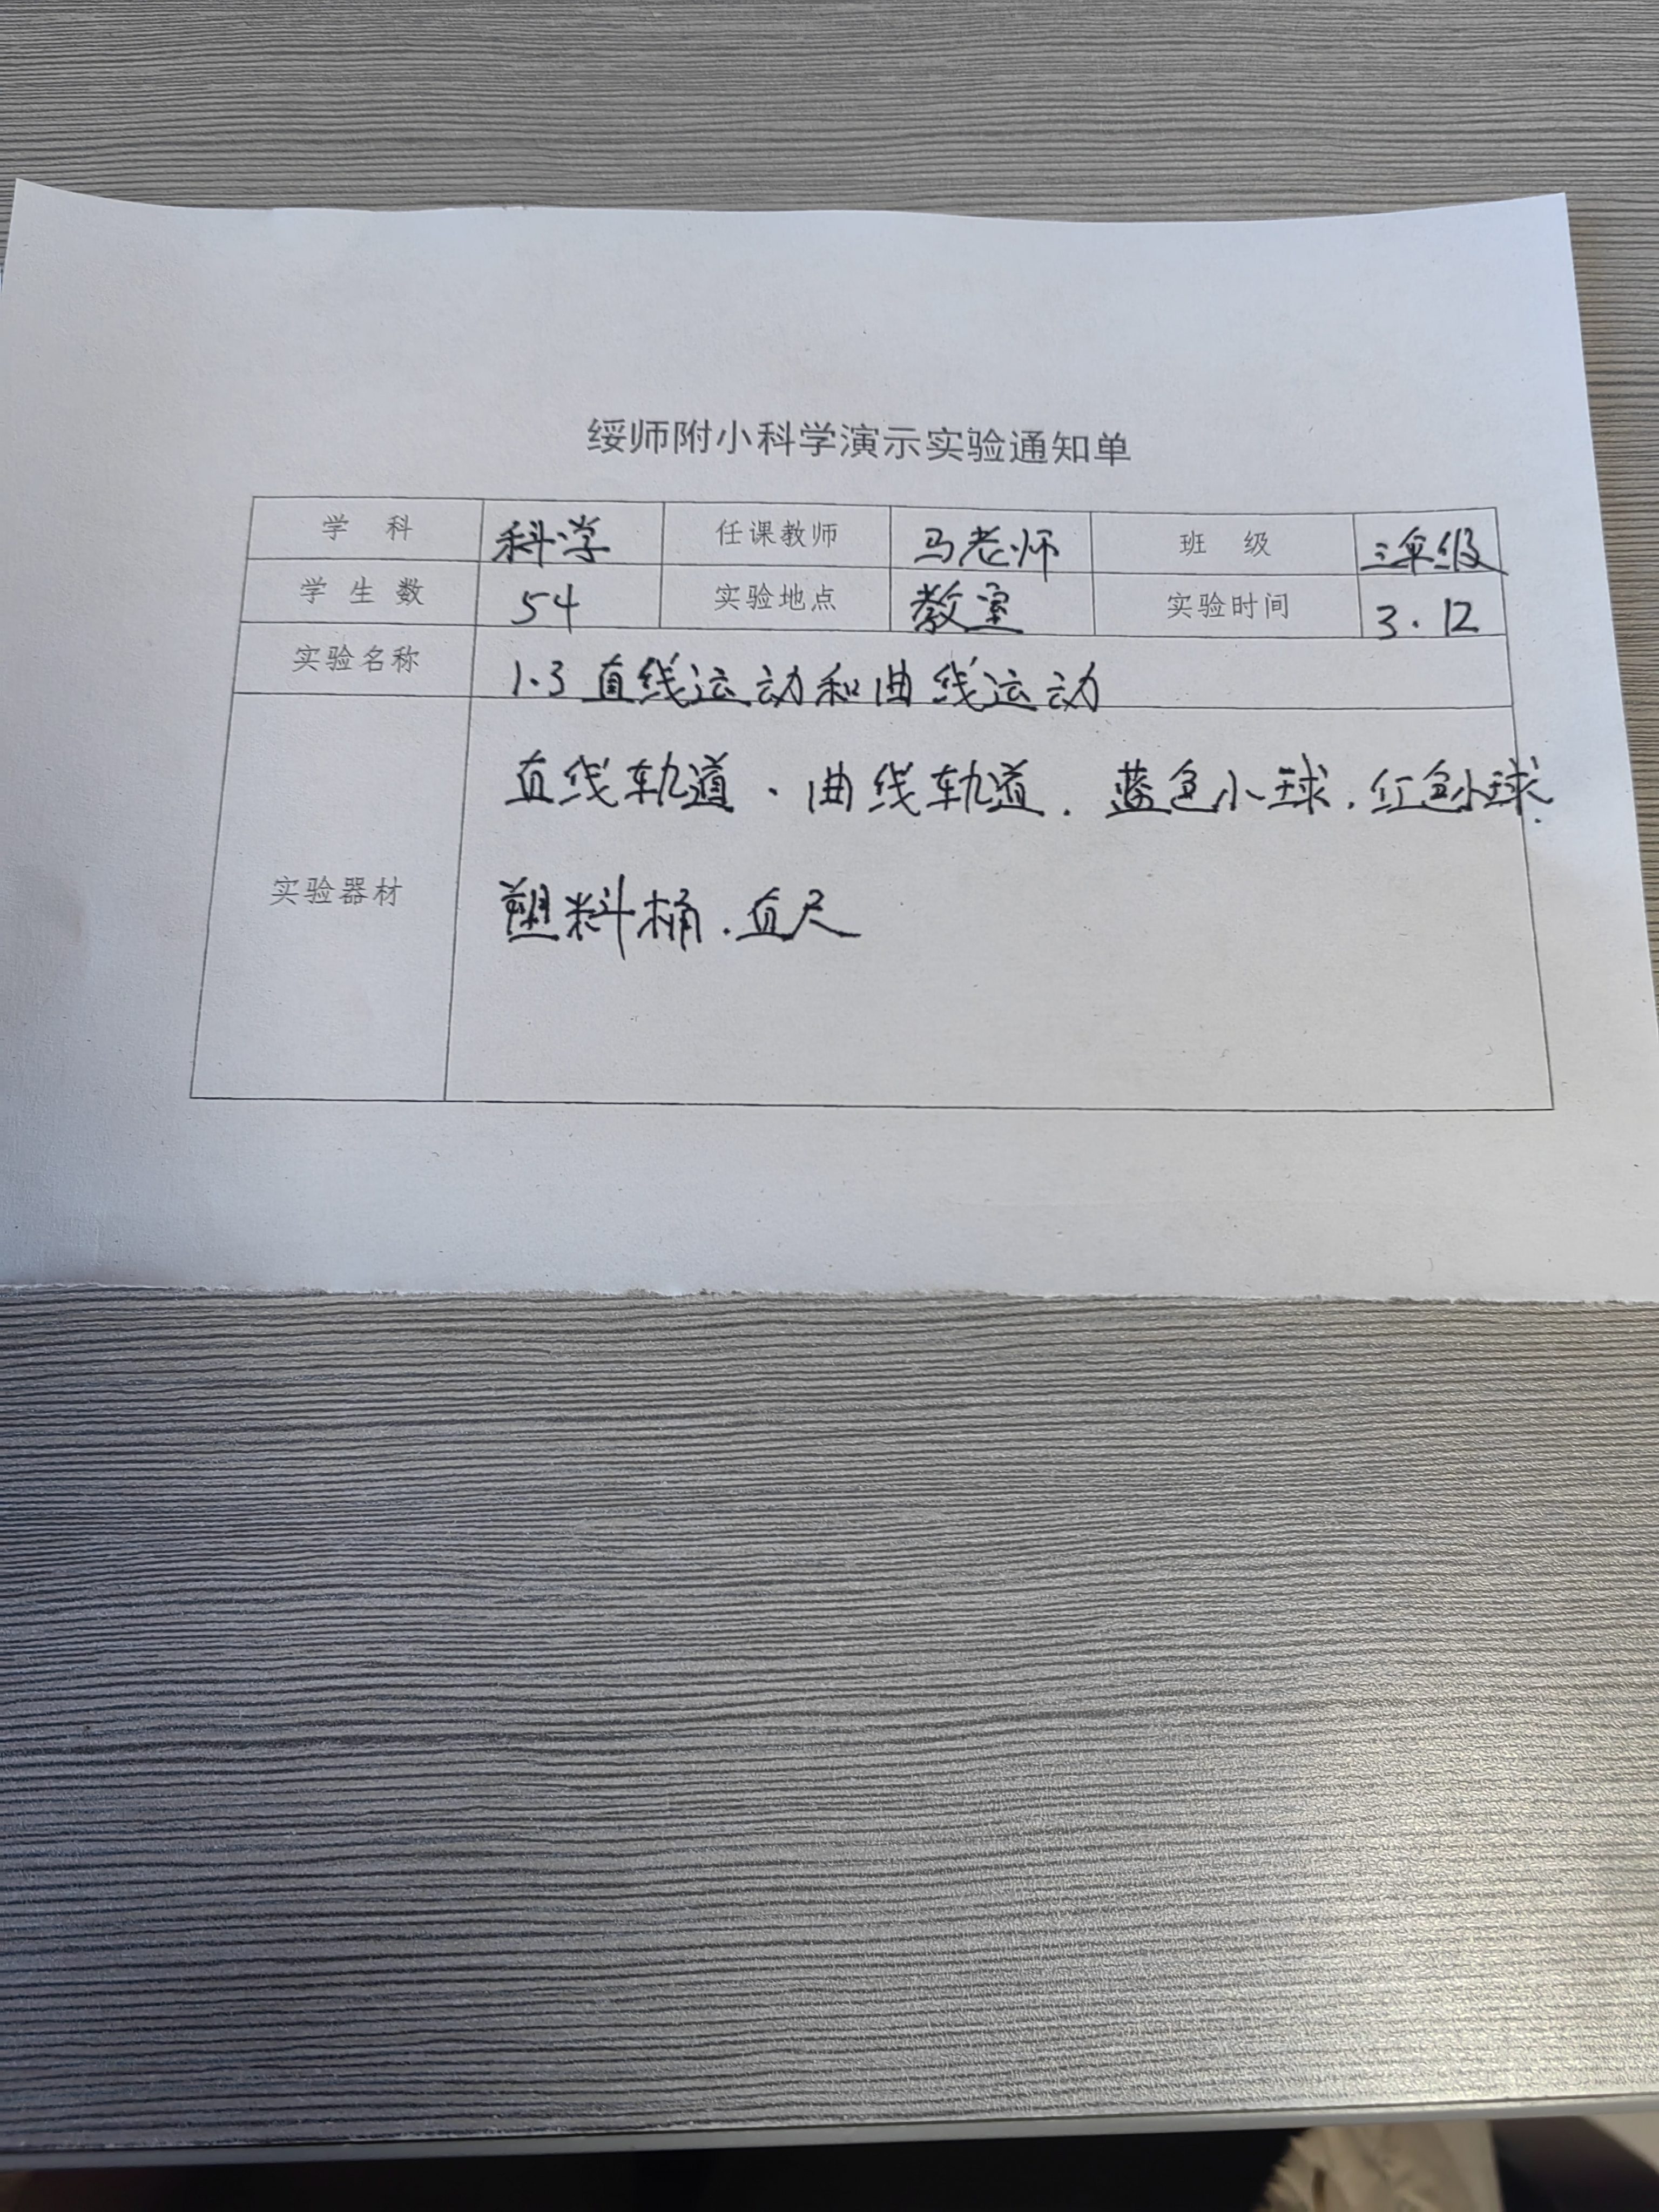 绥师附小科学演示实验通知单
学 科 科学 任课教师 马老师 班 级 三年级
学 生 数 54 实验地点 教室 实验时间 3.12
实验名称 1.3 直线运动和曲线运动
直线轨道、曲线轨道.蓝色小球.红色小球.
实验器材 塑料桶.直尺